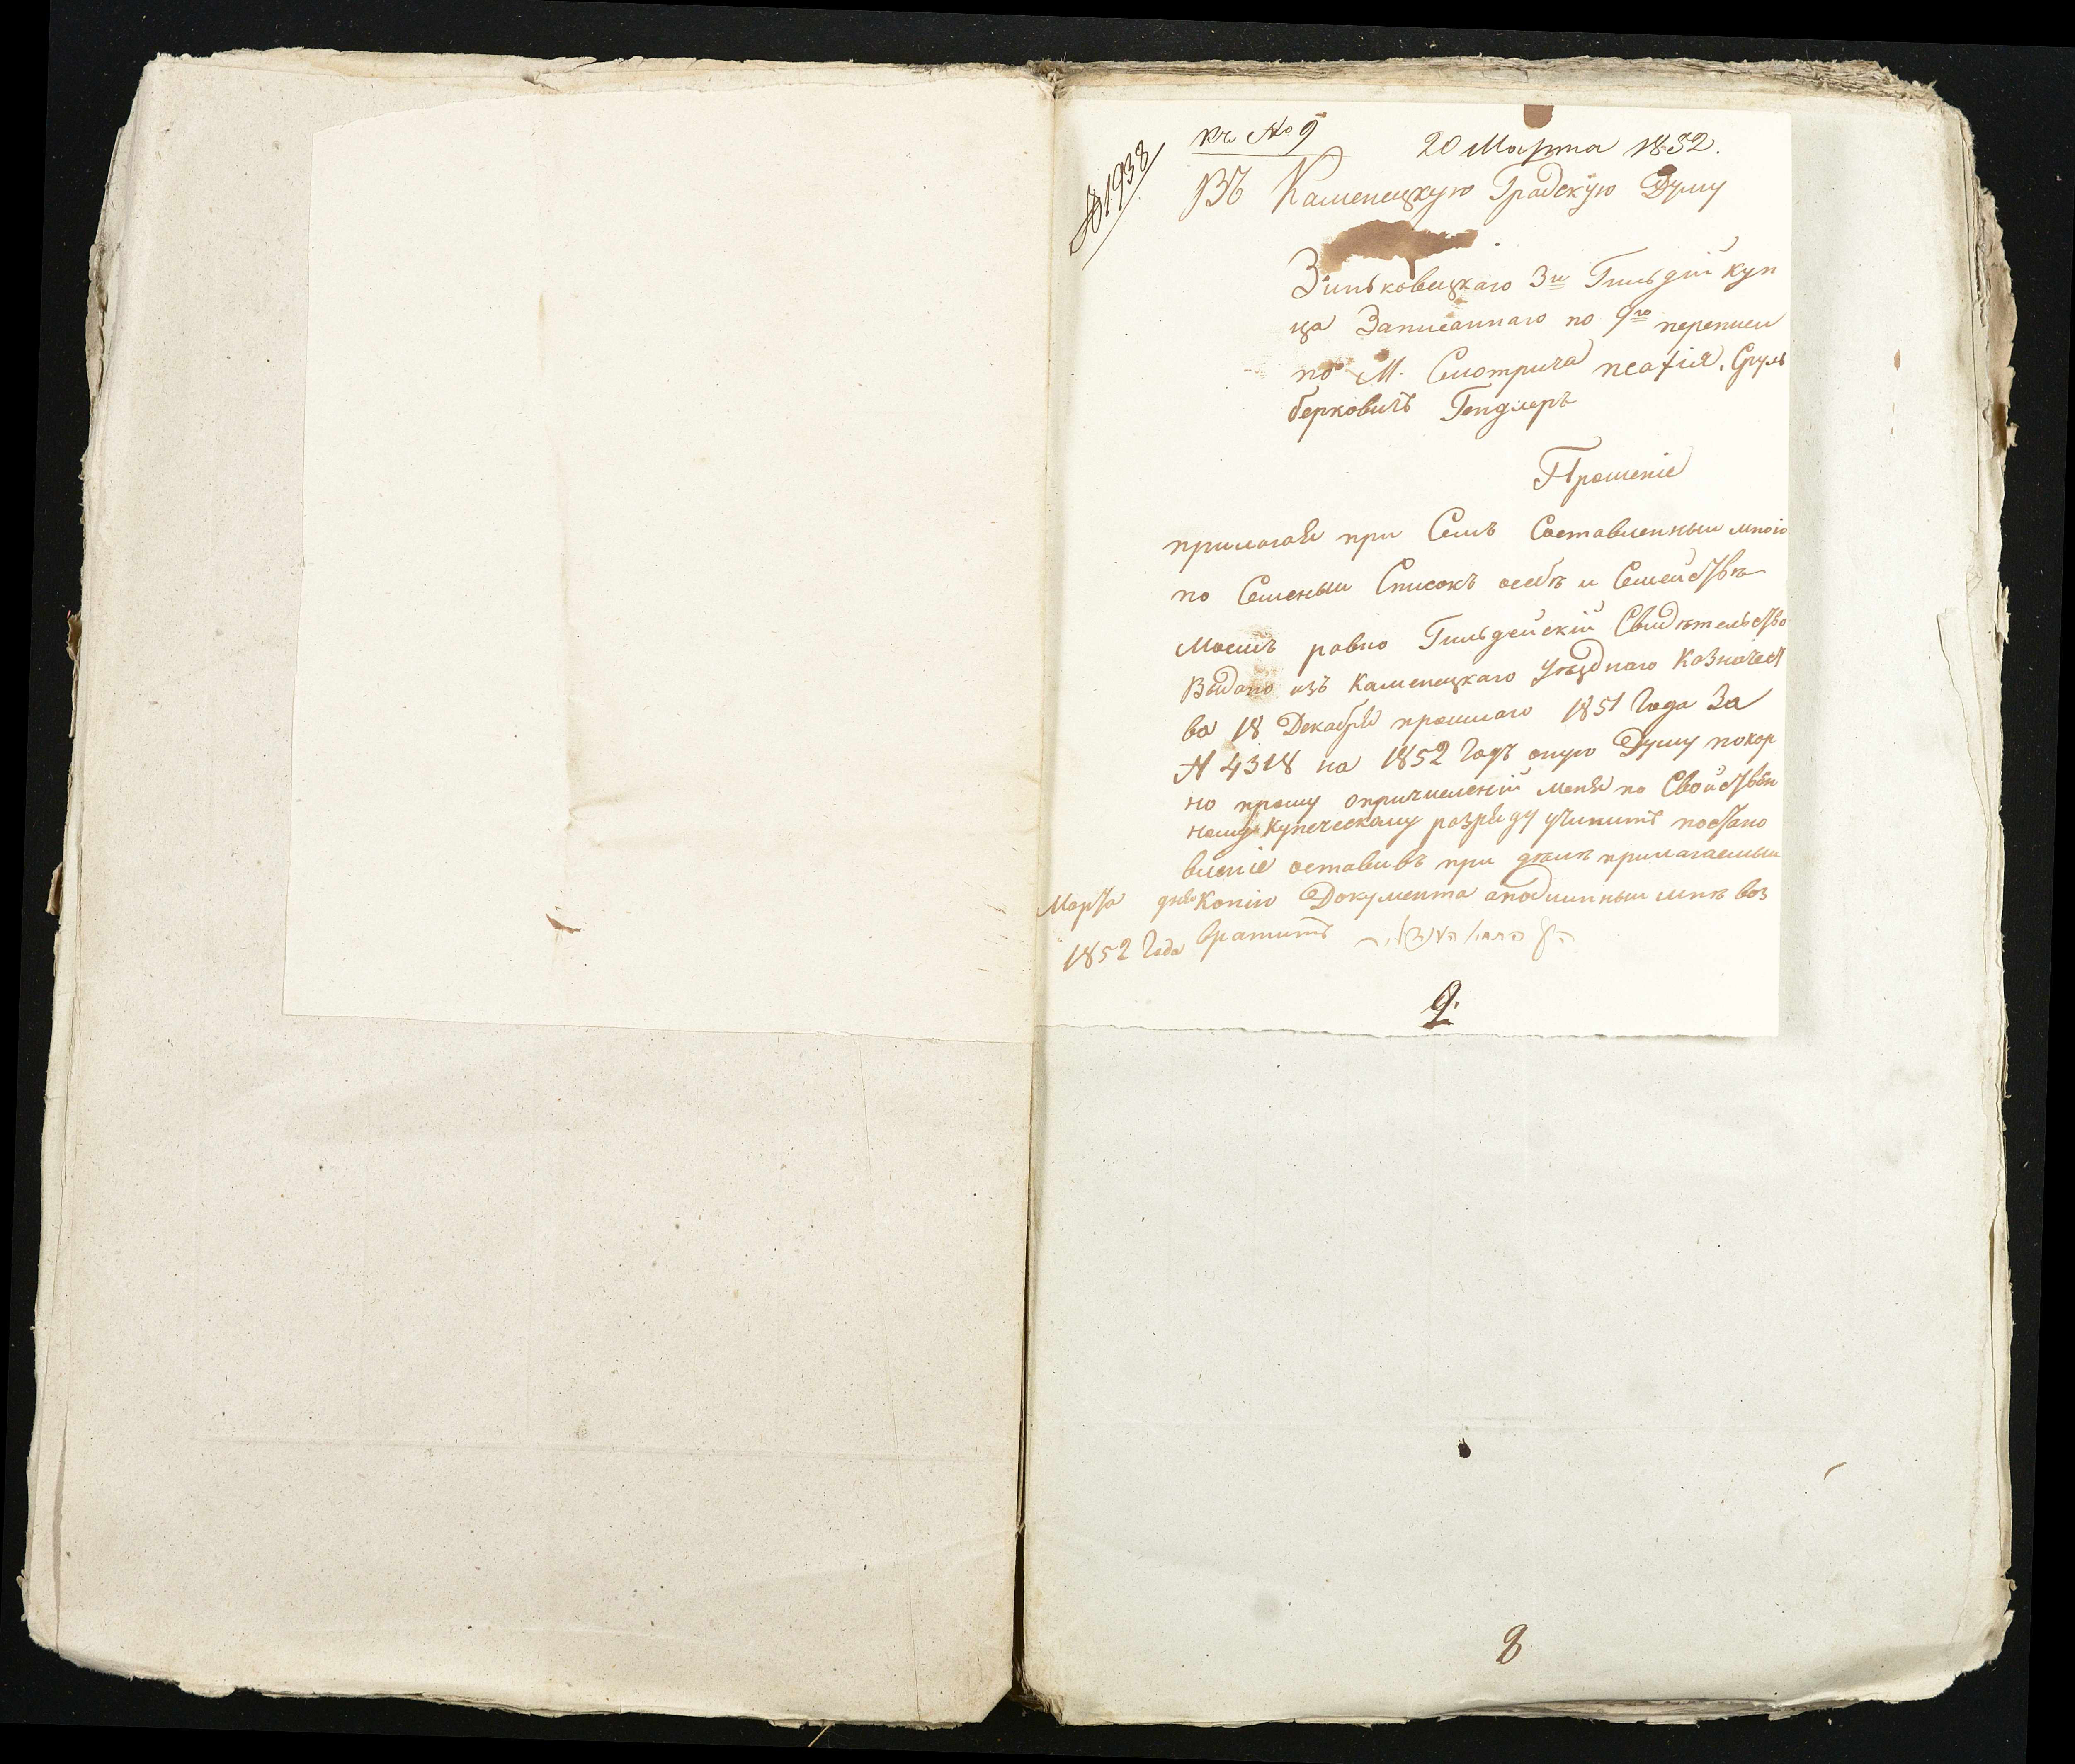 къ № 9
20 Марта 1852.
№ 1938
Въ Каменецкую Градскую Думу
Зиньковецкаго 3й Гильдіи куп
ца Записаннаго по 9го переписи
по М. Смотрича Сруль
берковичъ Гендлеръ
Прошеніе
прилагая при Семъ Составленныи мною
по Семеныи Списокъ осебѣ и Семействѣ
Моемъ равно Гильдейскій Свидѣтельство
Выдано изъ Каменецкаго Уѣзднаго Казначей
ва 18 Декабря прошлаго 1851 Года За
№ 4318 на 1852 Годъ оную Думу покор
но прошу опричисленіи меня по Свойствен
ному Купеческому разряду учинить постано
вленіе оставивъ при дѣлѣ прилагаемыи
Марта дня Копіи Документа аподлинныи мнѣ воз
1852 Года вратить
9.
8